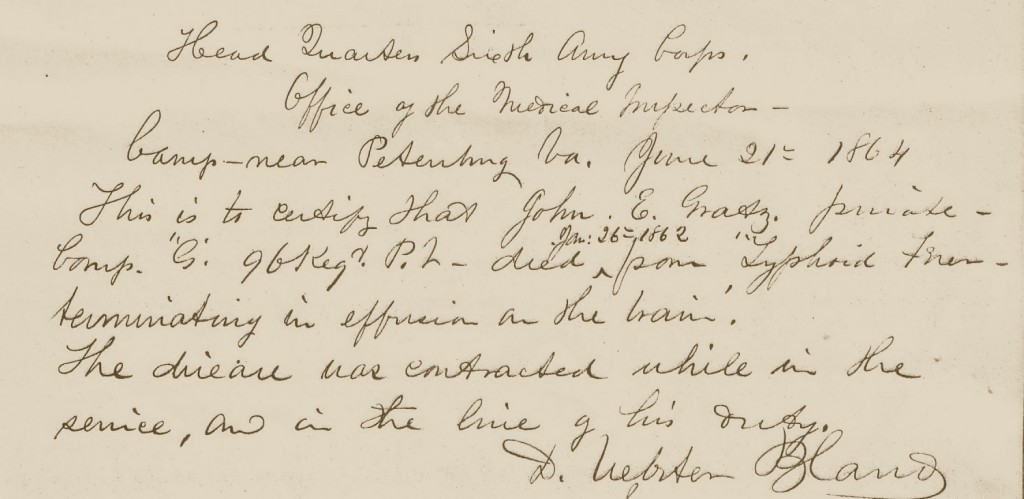 Head Quarters Sixth Army Corps.
Office of the Medical Inspector -
Camp - near Petersburg Va. June 21st 1864
This is to certify that John. E. Gratz. private -
Comp. "G". 96 Regt. P.V - died ^ Jan: 26th 1862 from "Typhoid Fever -
terminating in effusion on the brain".
The disease was contracted while in the
service, and in the line of his duty.
D. Webster Bland